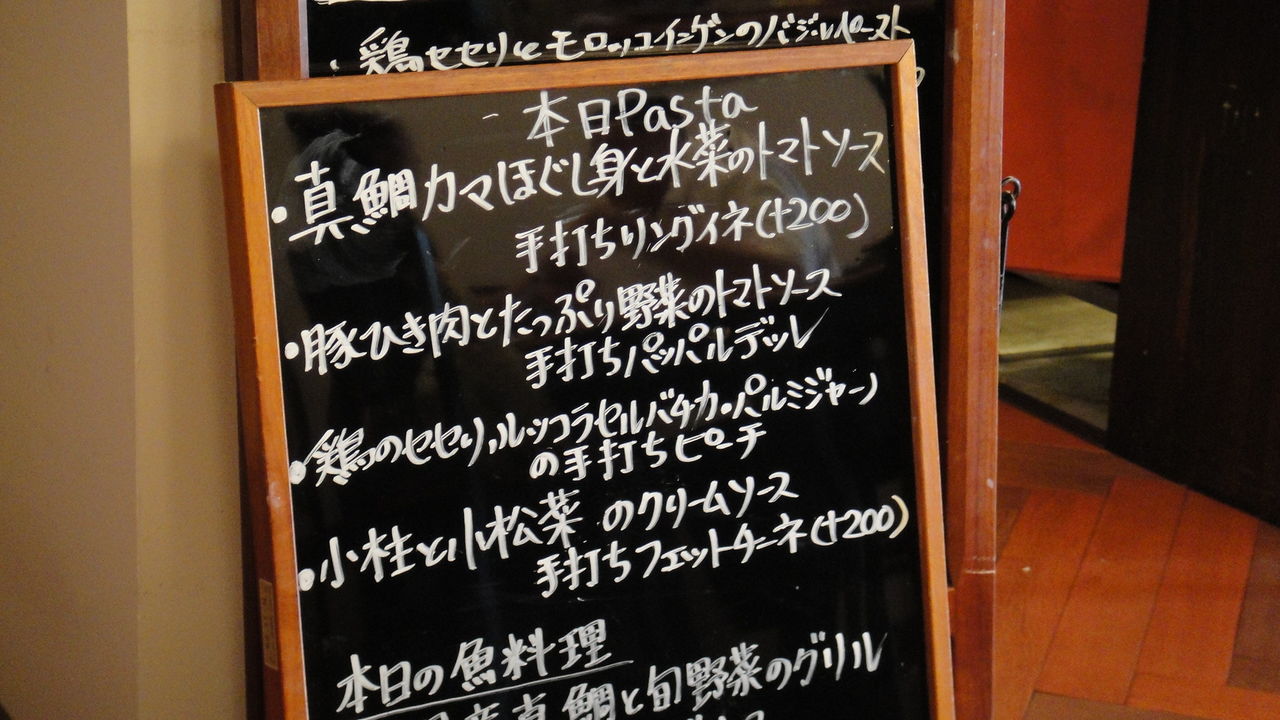 ・鶏セセリとモロッコインゲンのバジルペースト
本日Pasta
・真鯛カマほぐし身と水菜のトマトソース
手打ちリングイネ(+200)
・豚ひき肉とたっぷり野菜のトマトソース
手打ちパッパルデッレ
・鶏のセセリ,ルッコラセルバチカ・パルミジャーノ
の手打ちピーチ
・小柱と小松菜のクリームソース
手打ちフェットチーネ(+200)
本日の魚料理
真鯛と旬野菜のグリル